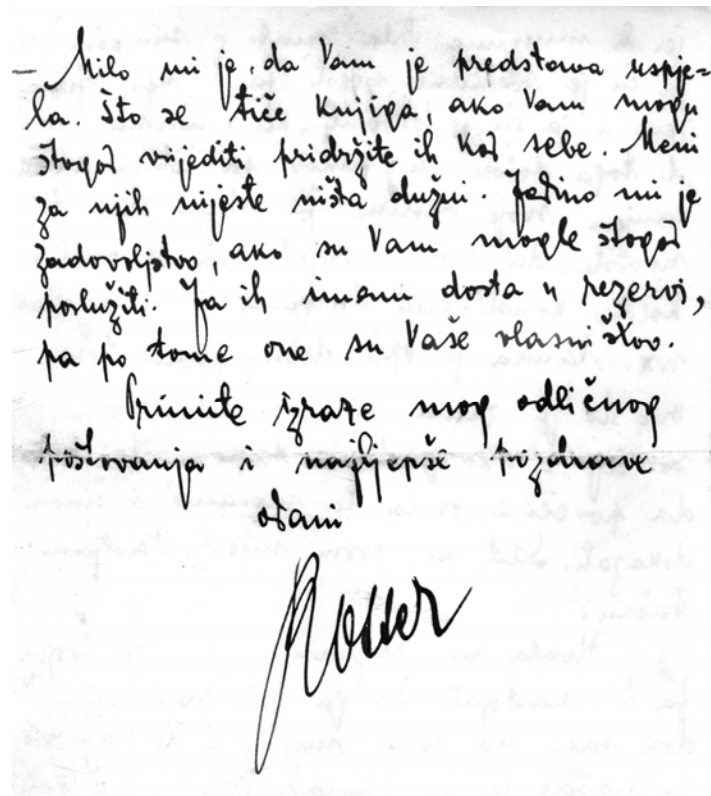 – Milo mi je, da Vam je predstava uspje=
la. Što se tiče knjiga, ako Vam mogu
štogod vrijediti pridržite ih kod sebe. Meni
za njih nijeste ništa dužni. Jedino mi je
zadovoljstvo, ako su Vam mogle štogod
poslužiti. Ja ih imam dosta u rezervi,
pa po tome one su Vaše vlasništvo.
Primite izraze mog odličnog
poštovanja i najljepše pozdrave
odani